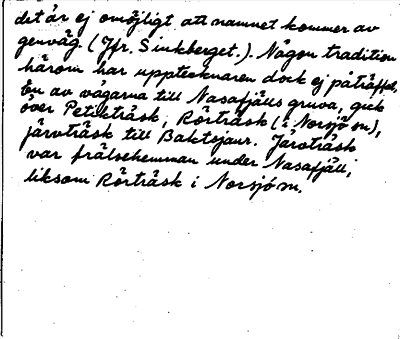 det är ej omöjligt att namnet kommer av
genväg. (Jfr. Sinkberget.). Någon tradition
härom har upptecknaren dock ej påträffat.
En av vägarna till Nasafjälls gruva, gick
över Petikträsk, Rörträsk (i Norsjö sn),
Järvträsk till Baktsjaur. Järvträsk
var frälsehemman under Nasafjäll,
liksom Rörträsk i Norsjö sn.